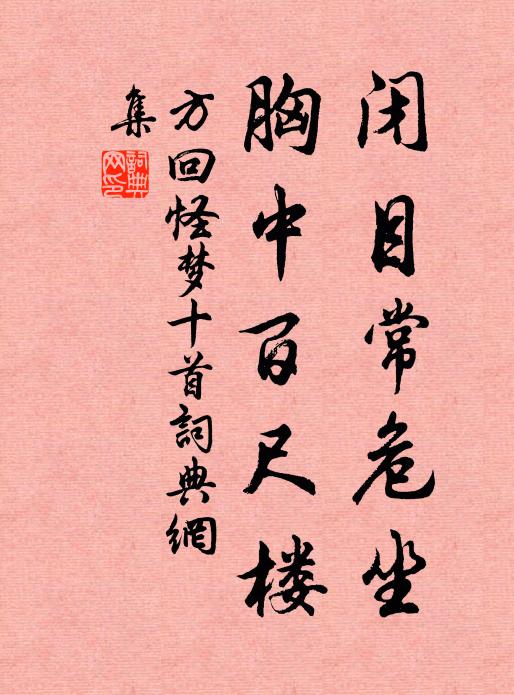 闭目常危坐
胸中百尺楼
方回怪梦十首詞典網
集
詞典
网印